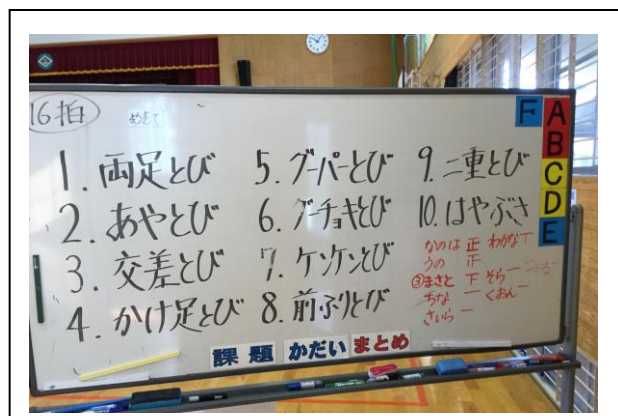 16拍
めあて
1. 両足とび
2. あやとび
3. 交差とび
4. かけ足とび
5. グーパーとび
6. グーチョキとび
7. ケンケンとび
8. 前ふりとび
9. 二重とび
10. はやぶさ
なのは 正 わかな 下
うの 正
③まさと 下 そら 一
ちな 一 くおん 一
さいら 一
課題 かだい まとめ
F
A
B
C
D
E